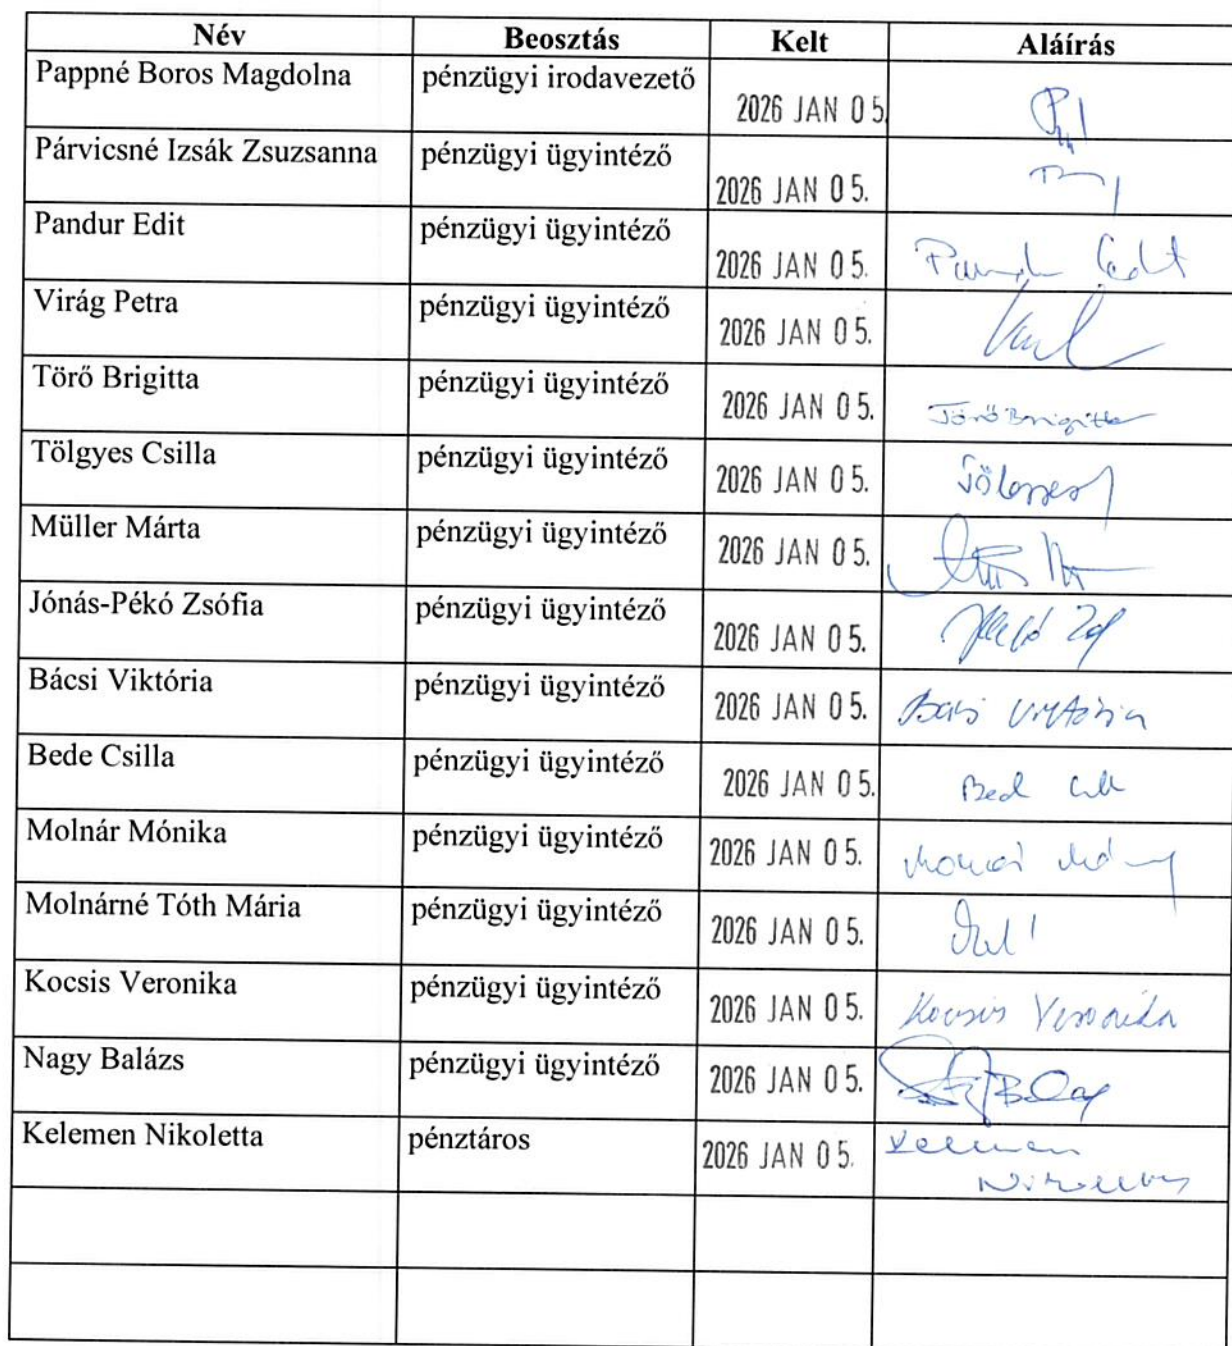 Név Beosztás Kelt Aláírás
Pappné Boros Magdolna pénzügyi irodavezető 2026 JAN 05.
Párvicsné Izsák Zsuzsanna pénzügyi ügyintéző 2026 JAN 05.
Pandur Edit pénzügyi ügyintéző 2026 JAN 05.
Virág Petra pénzügyi ügyintéző 2026 JAN 05.
Törő Brigitta pénzügyi ügyintéző 2026 JAN 05. Törő Brigitta
Tölgyes Csilla pénzügyi ügyintéző 2026 JAN 05.
Müller Márta pénzügyi ügyintéző 2026 JAN 05.
Jónás-Pékó Zsófia pénzügyi ügyintéző 2026 JAN 05.
Bácsi Viktória pénzügyi ügyintéző 2026 JAN 05. Bácsi Viktória
Bede Csilla pénzügyi ügyintéző 2026 JAN 05.
Molnár Mónika pénzügyi ügyintéző 2026 JAN 05.
Molnárné Tóth Mária pénzügyi ügyintéző 2026 JAN 05.
Kocsis Veronika pénzügyi ügyintéző 2026 JAN 05. Kocsis Veronika
Nagy Balázs pénzügyi ügyintéző 2026 JAN 05.
Kelemen Nikoletta pénztáros 2026 JAN 05. Kelemen
Nikoletta